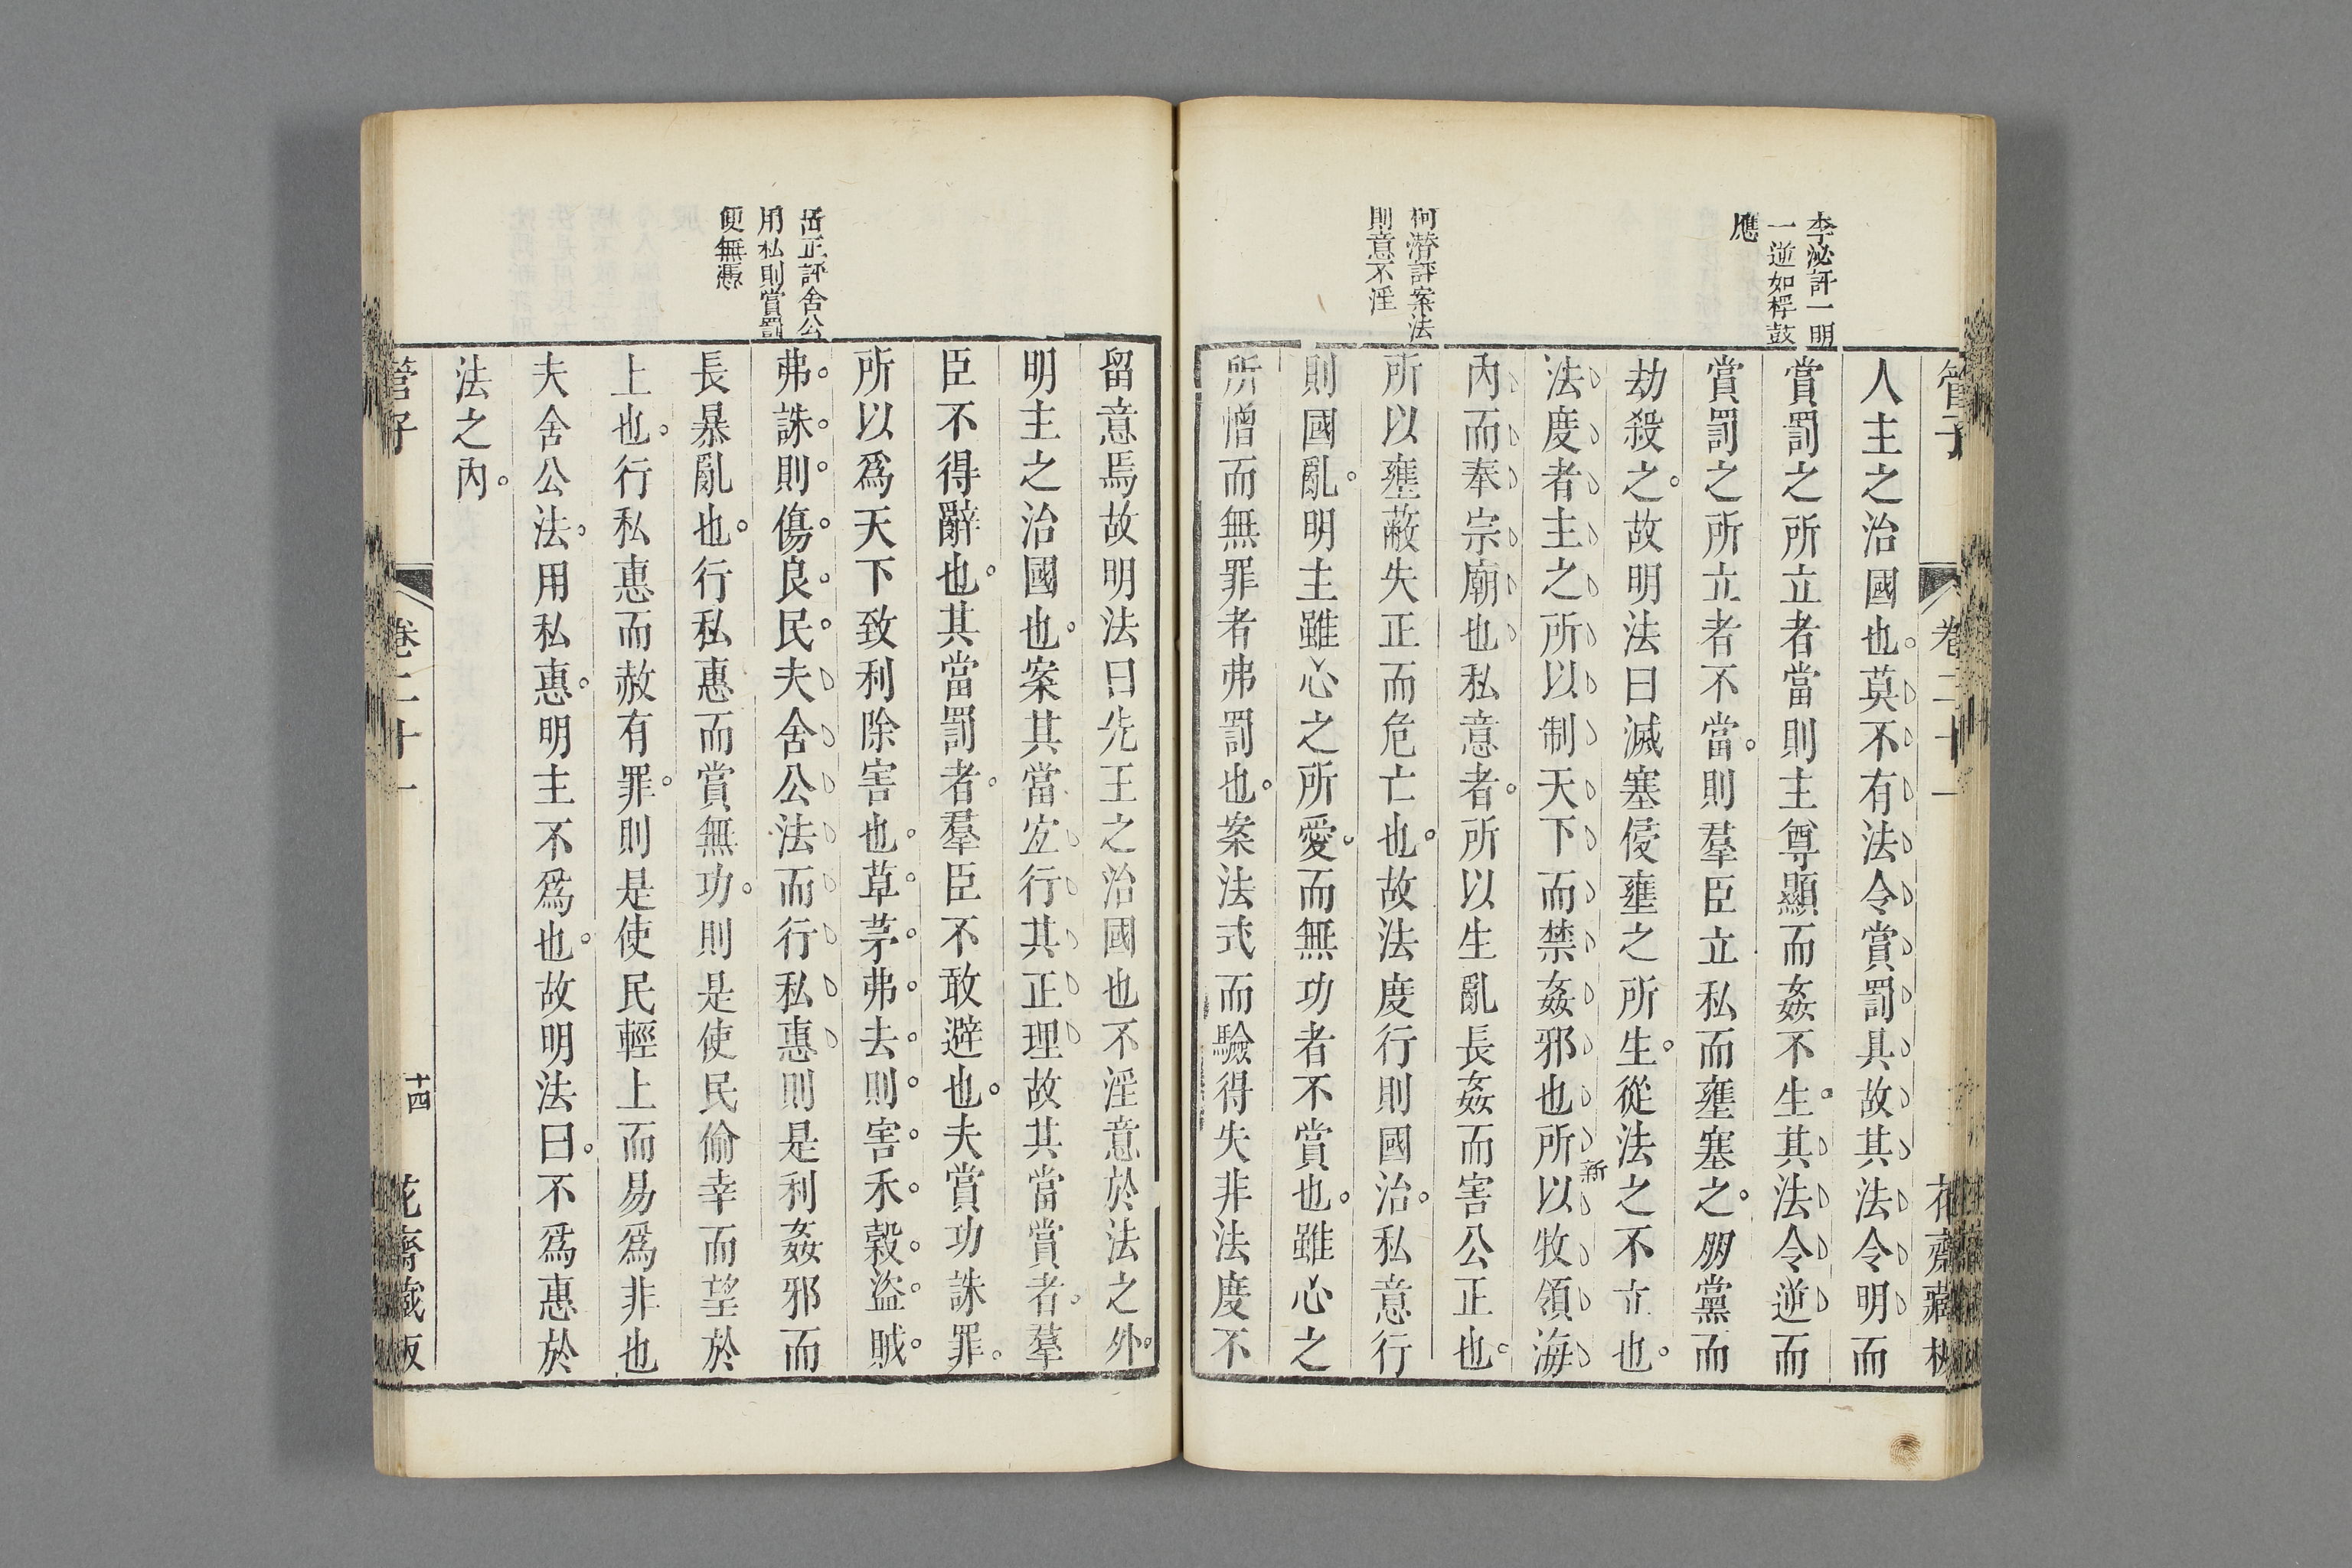 管子
卷二十一
花齋藏板
李泌評一明
一逆如桴鼓
應
人主之治國也莫不有法令賞罰具故其法令明而
賞罰之所立者當則主尊顯而姦不生其法令逆而
賞罰之所立者不當則羣臣立私而壅塞之朋黨而
劫殺之故明法曰滅塞侵壅之所生從法之不立也
法度者主之所以制天下而禁姦邪也所以牧領海
新
內而奉宗廟也私意者所以生亂長姦而害公正也
何潛評案法
則意不淫
所以壅蔽失正而危亡也故法度行則國治私意行
則國亂明主雖心之所愛而無功者不賞也雖心之
所憎而無罪者弗罰也案法式而驗得失非法度不
留意焉故明法曰先王之治國也不淫意於法之外
明主之治國也案其當宜行其正理故其當賞者羣
臣不得辭也其當罰者羣臣不敢避也夫賞功誅罪
所以爲天下致利除害也草茅弗去則害禾穀盜賊
岳正評舍公
用私則賞罰
便無憑
弗誅則傷良民夫舍公法而行私惠則是利姦邪而
長暴亂也行私惠而賞無功則是使民偷幸而望於
上也行私惠而赦有罪則是使民輕上而易爲非也
夫舍公法用私惠明主不爲也故明法曰不爲惠於
法之內
管子
卷二十一
十四
花齋藏板